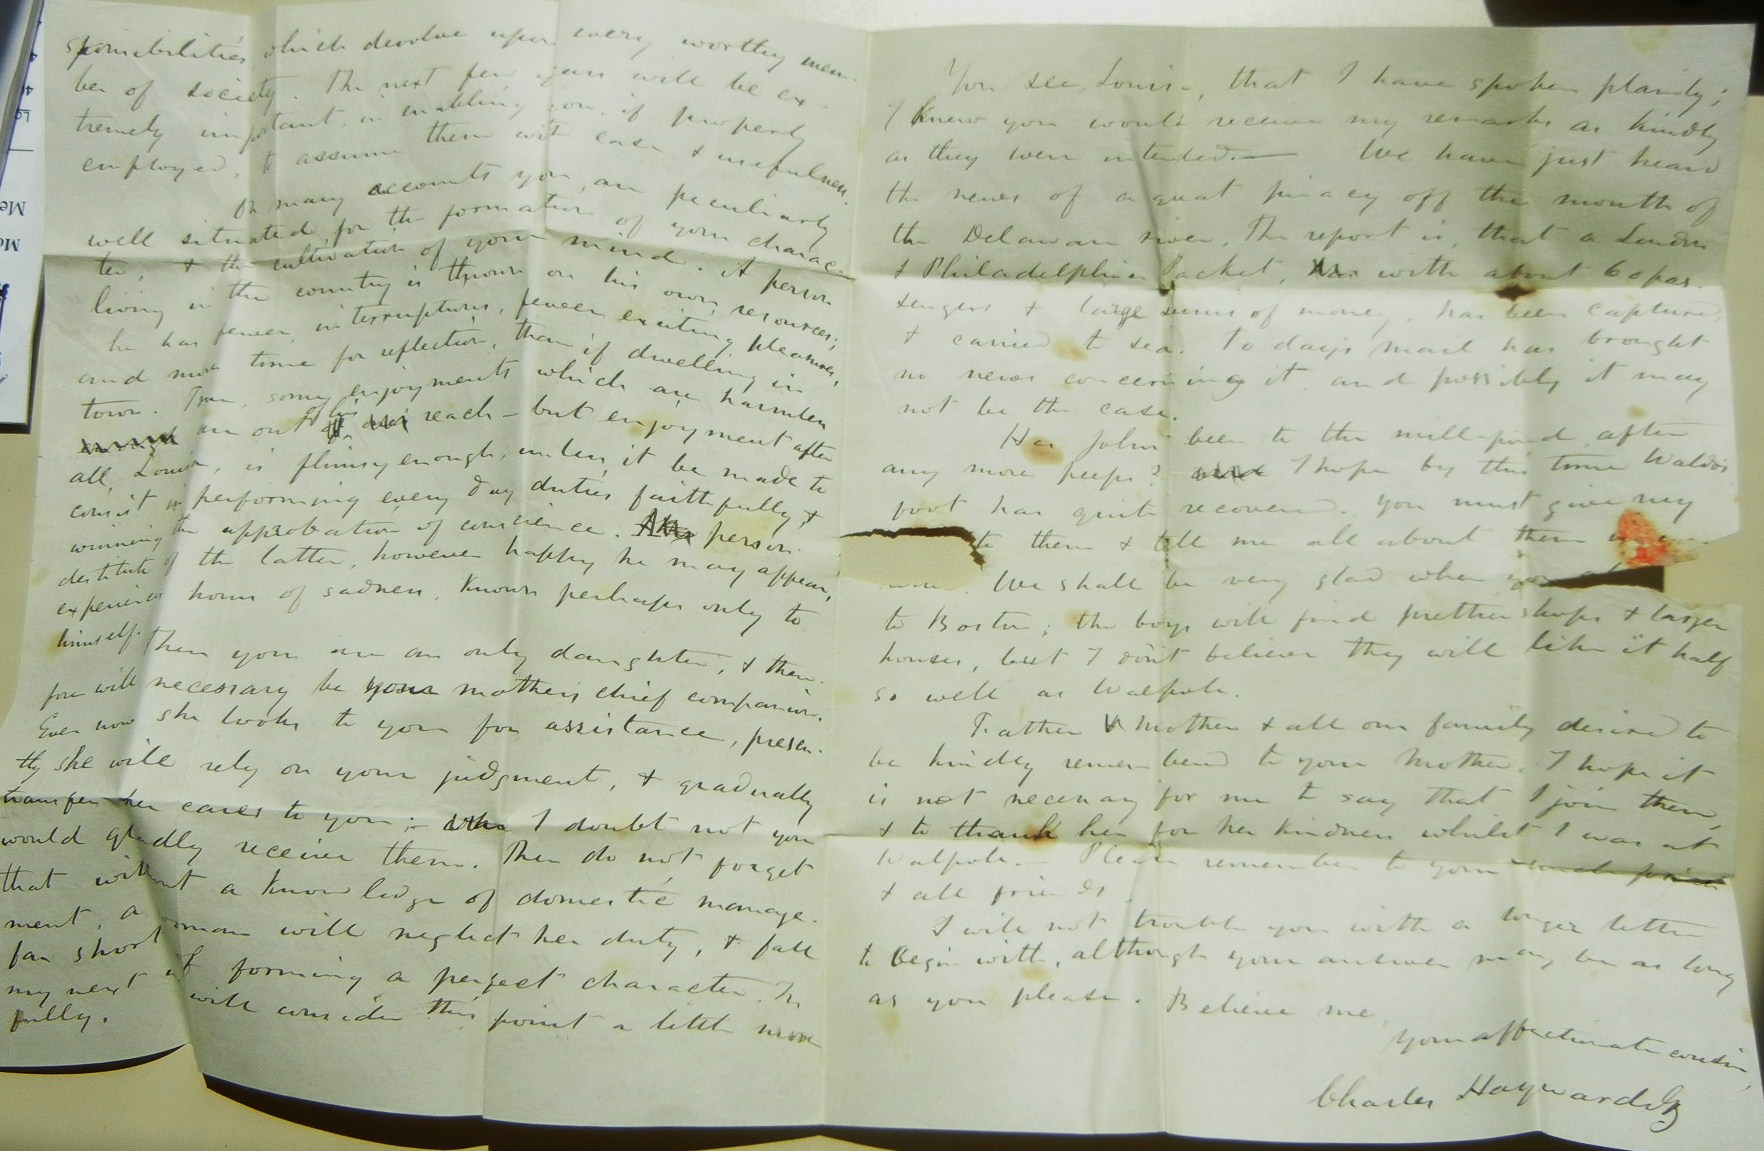 sponsibilities which devolve upon every worthy mem-
ber of society. The next few years will be ex-
tremely important, in enabling you, if properly
employed, to assume them with ease & usefulness.
On many accounts you are peculiarly
well situated for the formation of your charac-
ter, & the cultivation of your mind. A person
living in the country is thrown on his own resources;
he has fewer interruptions, fewer exciting pleasures,
and more time for reflection, than if dwelling in
town. True, some enjoyments which are harmless
are out of reach - but enjoyment after
all, Louisa, is flimsy enough, unless it be made to
consist in performing every day duties faithfully, &
winning the approbation of conscience. person
destitute of the latter, however happy he may appear,
experiences hours of sadness, known perhaps only to
himself.
Then you are an only daughter, & there-
fore will necessary be your mother's chief companion.
Even now she looks to you for assistance, presen-
tly she will rely on your judgment, & gradually
transfer her cares to you; - I doubt not you
would gladly receive them. Then do not forget
that without a knowledge of domestic manage-
ment, a woman will neglect her duty, & fall
far short of forming a perfect character. In
my next I will consider this point a little more
fully.
You see, Louisa, that I have spoken plainly;
I knew you would receive my remarks as kindly
as they were intended. — We have just heard
the news of a great piracy off the mouth of
the Delaware river. The report is, that a London
& Philadelphia Packet, with about 60 pas-
sengers & large sums of money, has been captured
& carried to sea. To day's mail has brought
no news concerning it and possibly it may
not be the case.
Has John been to the mill-pond after
any more peeps? I hope by this time Waldo's
foot has quite recovered. You must give my
to them & tell me all about them
We shall be very glad when you
to Boston; the boys will find prettier shops & larger
houses, but I don't believe they will like it half
so well as Walpole.
Father & Mother & all our family desire to
be kindly remembered to your Mother. I hope it
is not necessary for me to say that I join them,
& to thank her for her kindness whilst I was at
Walpole. — Please remember to your
& all friends.
I will not trouble you with a longer letter
to begin with, although your answer may be as long
as you please. Believe me,
your affectionate cousin,
Charles Hayward Jr